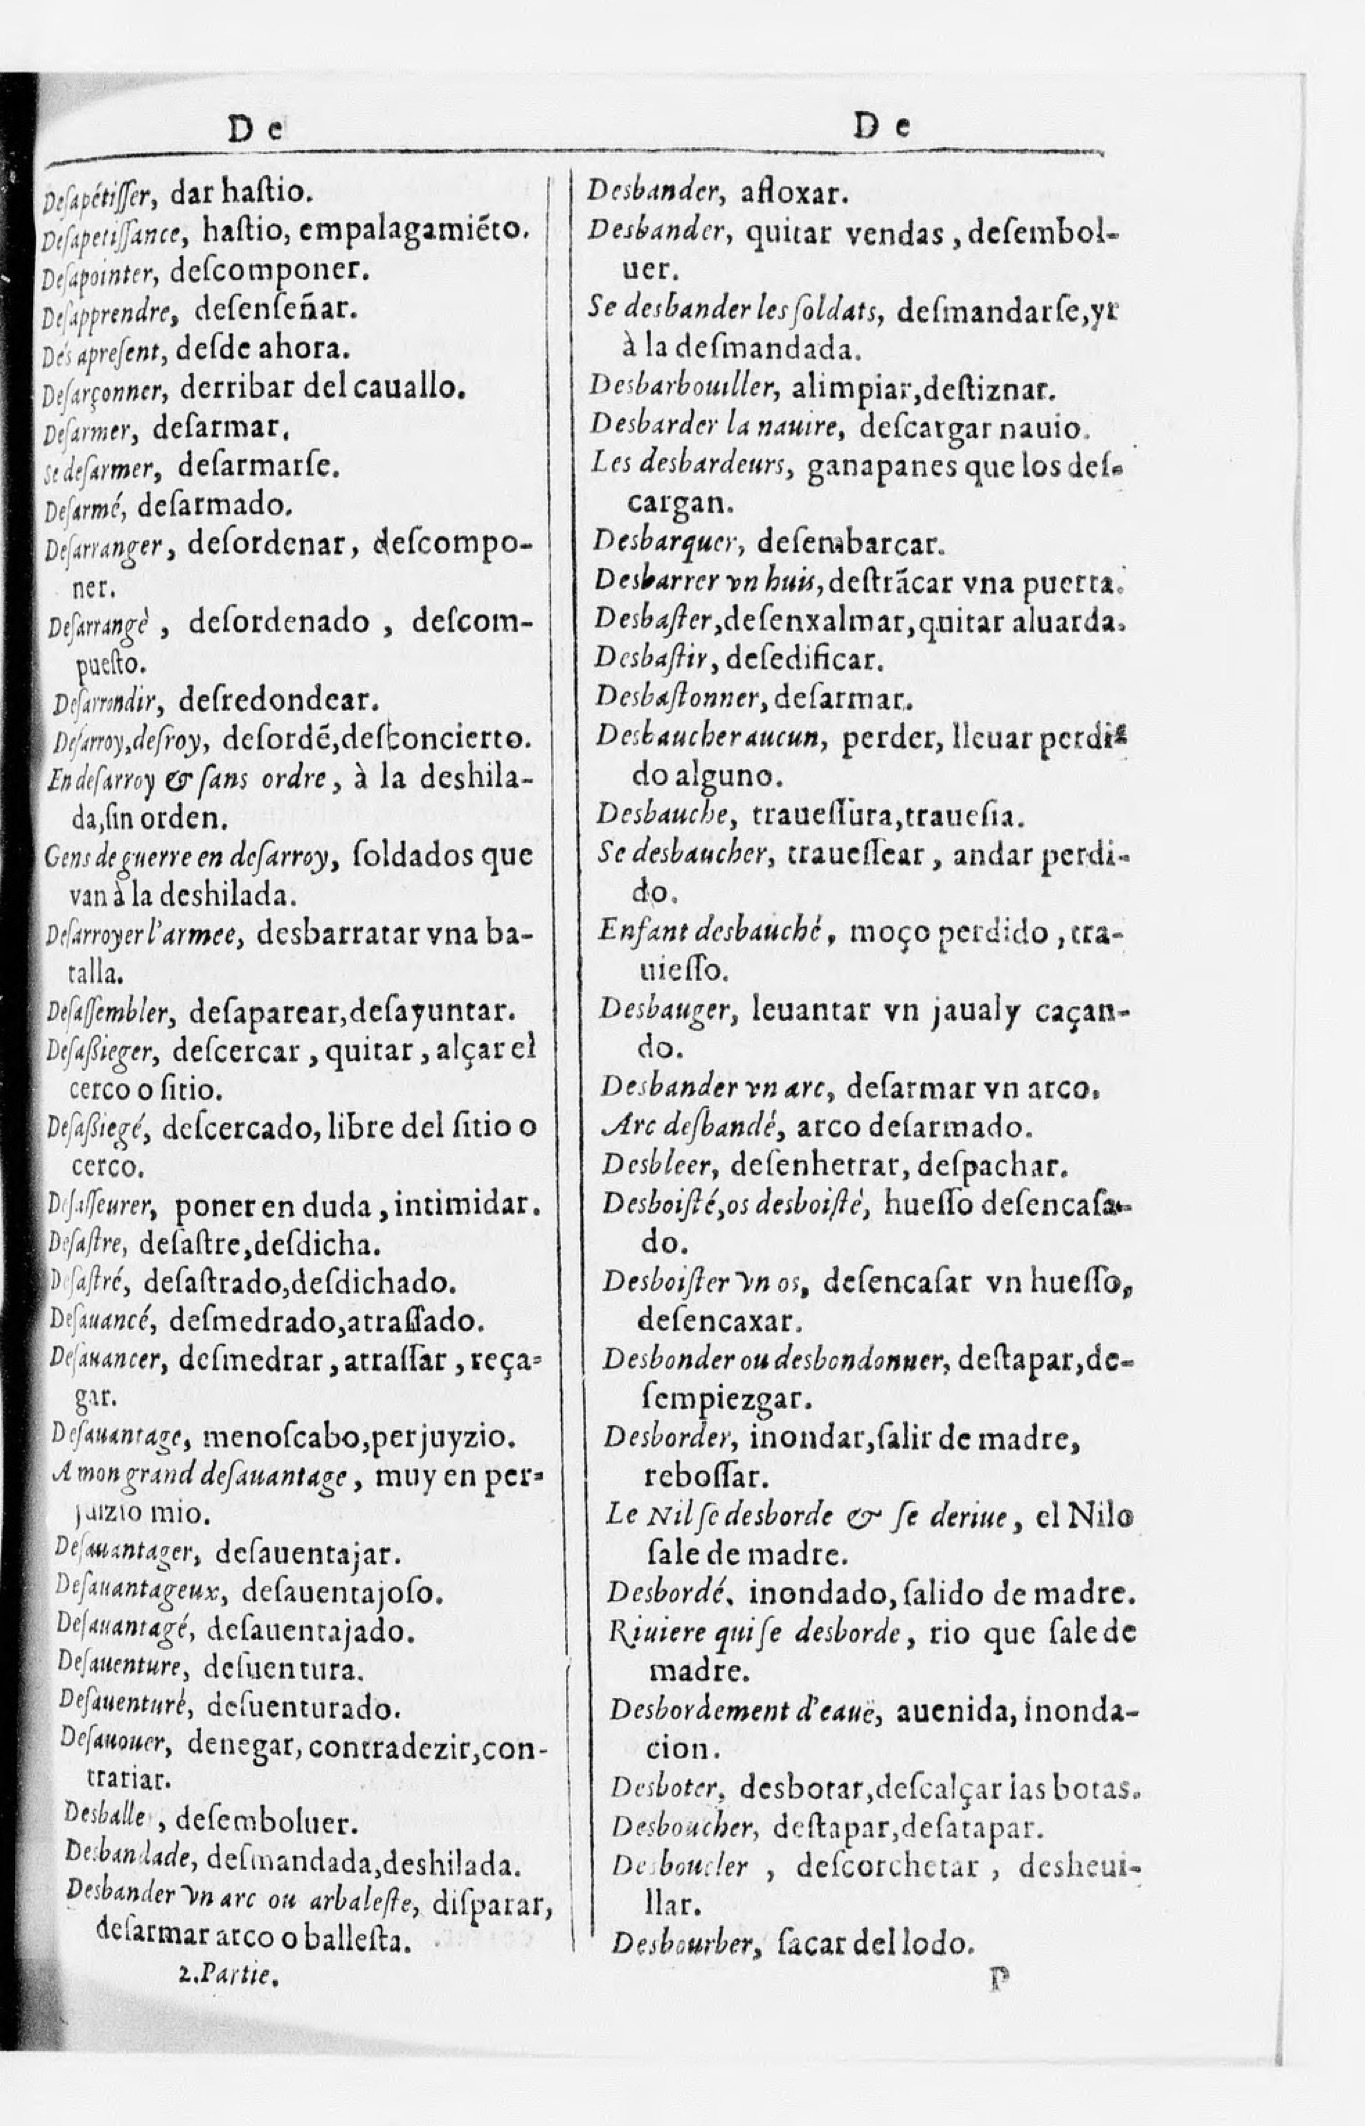 De
Deſapétiſſer, dar haſtio.
Deſapetiſſance, haſtio, empalagamiẽto.
Deſapointer, deſcomponer.
Deſapprendre, deſenſeñar.
Dés apreſent, deſde ahora.
Deſarçonner, derribar del cauallo.
Deſarmer, deſarmar.
Se deſarmer, deſarmarſe.
Deſarmé, deſarmado.
Deſarranger, deſordenar, deſcompo-
ner.
Deſarrangè, deſordenado, deſcom-
pueſto.
Deſarrondir, deſredondear.
Deſarroy, deſroy, deſordẽ, deſconcierto.
En deſarroy & ſans ordre, à la deshila-
da, ſin orden.
Gens de guerre en deſarroy, ſoldados que
van à la deshilada.
Deſarroyer l'armee, desbarratar vna ba-
talla.
Deſaſſembler, deſaparear, deſayuntar.
Deſaßieger, deſcercar, quitar, alçar el
cerco o ſitio.
Deſaßiegé, deſcercado, libre del ſitio o
cerco.
Deſaſſeurer, poner en duda, intimidar.
Deſaſtre, deſaſtre, deſdicha.
Deſaſtré, deſaſtrado, deſdichado.
Deſauancé, deſmedrado, atraſſado.
Deſauancer, deſmedrar, atraſſar, reça-
gar.
Deſauantage, menoſcabo, perjuyzio.
A mon grand deſauantage, muy en per-
juizio mio.
Deſauantager, deſauentajar.
Deſauantageux, deſauentajoſo.
Deſauantagé, deſauentajado.
Deſauenture, deſuentura.
Deſauenturé, deſuenturado.
Deſauouer, denegar, contradezir, con-
trariar.
Desballe, deſemboluer.
Desbandade, deſmandada, deshilada.
Desbander vn arc ou arbaleſte, diſparar,
deſarmar arco o balleſta.
2. Partie.
De
Desbander, afloxar.
Desbander, quitar vendas, deſembol-
uer.
Se desbander les ſoldats, deſmandarſe, yr
à la deſmandada.
Desbarbouiller, alimpiar, deſtiznar.
Desbarder la nauire, deſcargar nauio.
Les desbardeurs, ganapanes que los deſ-
cargan.
Desbarquer, deſembarcar.
Desbarrer vn huis, deſtrãcar vna puerta.
Desbaſter, deſenxalmar, quitar aluarda.
Desbaſtir, deſedificar.
Desbaſtonner, deſarmar.
Desbaucher aucun, perder, lleuar perdi-
do alguno.
Desbauche, traueſſura, traueſia.
Se desbaucher, traueſſear, andar perdi-
do.
Enfant desbauché, moço perdido, tra-
uieſſo.
Desbauger, leuantar vn jaualy caçan-
do.
Desbander vn arc, deſarmar vn arco.
Arc deſbandé, arco deſarmado.
Desbleer, deſenhetrar, deſpachar.
Desboiſté, os desboiſtè, hueſſo deſencaſa-
do.
Desboiſter vn os, deſencaſar vn hueſſo,
deſencaxar.
Desbonder ou desbondonner, deſtapar, de-
ſempiezgar.
Desborder, inondar, ſalir de madre,
reboſſar.
Le Nil ſe desborde & ſe deriue, el Nilo
ſale de madre.
Desbordé, inondado, ſalido de madre.
Riuiere qui ſe desborde, rio que ſale de
madre.
Desbordement d'eauë, auenida, inonda-
cion.
Desboter, desbotar, deſcalçar las botas.
Desboucher, deſtapar, deſatapar.
Desboucler, deſcorchetar, desheui-
llar.
Desbourber, ſacar del lodo.
P